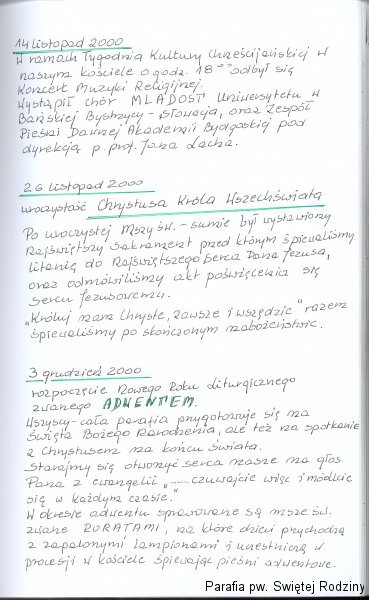 14 listopad 2000
W ramach Tygodnia Kultury Chrześcijańskiej w
naszym kościele o godz. 18°° odbył się
Koncert Muzyki Religijnej.
Wystąpił chór MLADOST Uniwersytetu w
Bańskiej Bystrzycy - Słowacja, oraz Zespół
Pieśni Dawnej Akademii Bydgoskiej pod
dyrekcją p. prof. Jana Lacha.
26 listopad 2000
uroczystość Chrystusa Króla Wszechświata
Po uroczystej Mszy św. - sumie był wystawiony
Najświętszy Sakrament przed którym śpiewaliśmy
litanię do Najświętszego Serca Pana Jezusa,
oraz odmówiliśmy akt poświęcenia się
Sercu Jezusowemu.
"Króluj nam Chryste, zawsze i wszędzie" razem
śpiewaliśmy po skończonym nabożeństwie.
3 grudzień 2000
rozpoczęcie Nowego Roku liturgicznego
zwanego ADWENTEM.
Wszyscy - cała parafia przygotowuje się na
Święta Bożego Narodzenia, ale też na spotkanie
z Chrystusem na końcu świata.
Starajmy się otworzyć serca nasze na głos
Pana z ewangelii "......czuwajcie więc i módlcie
się w każdym czasie."
W okresie adwentu sprawowane są msze św.
zwane RORATAMI, na które dzieci przychodzą
z zapalonymi lampionami i uczestniczą w
procesji w kościele śpiewając pieśni adwentowe.
Parafia pw. Swiętej Rodziny